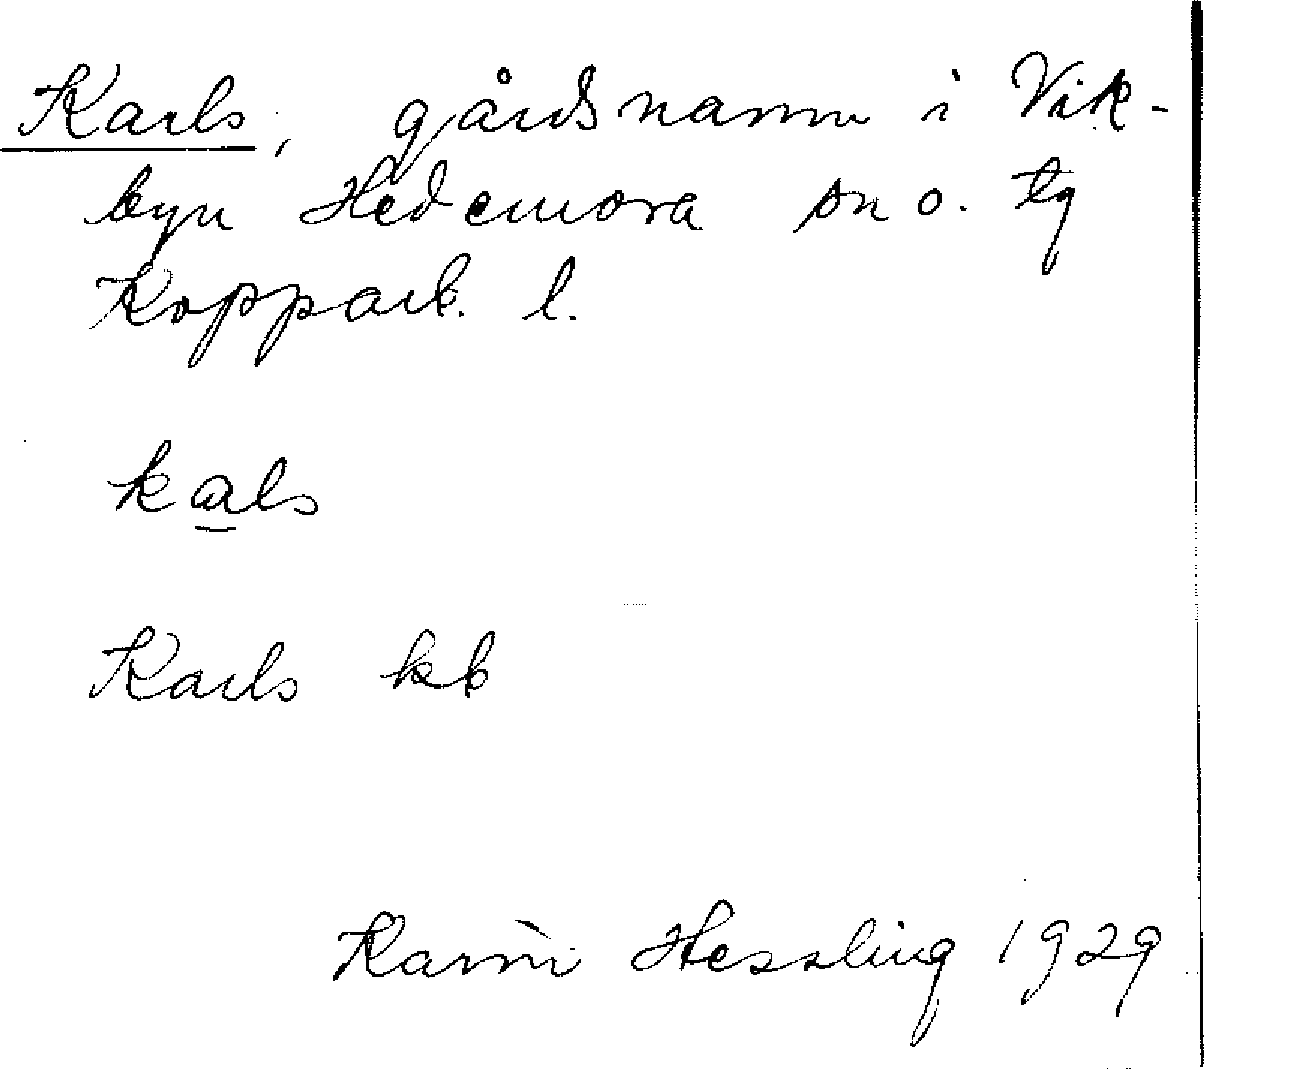 Karls, gårdsnamn i Vik-
byn Hedemora sn o. tg
Kopparb. l.
kals
Karls kb
Karin Hessling 1929